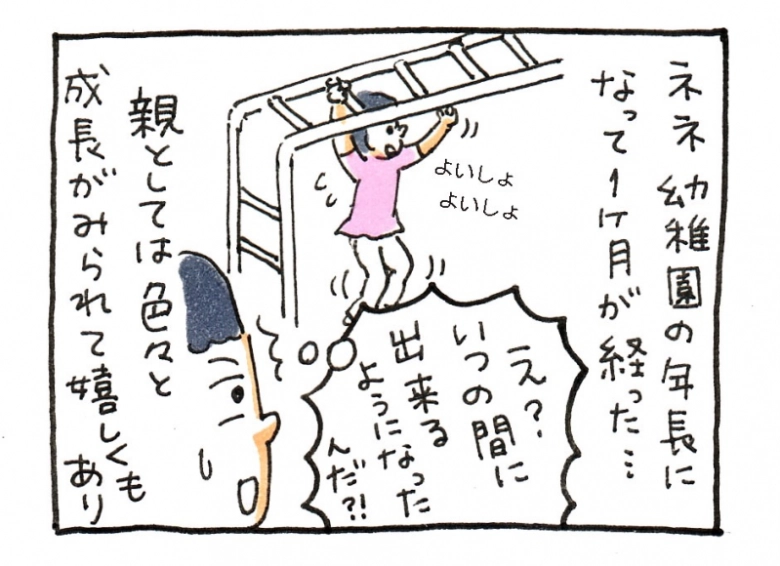 ネネ幼稚園の年長に
なって1ヶ月が経った…
よいしょ
よいしょ
え?
いつの間に
出来る
ようになった
んだ?!
親としては色々と
成長がみられて嬉しくも
あり